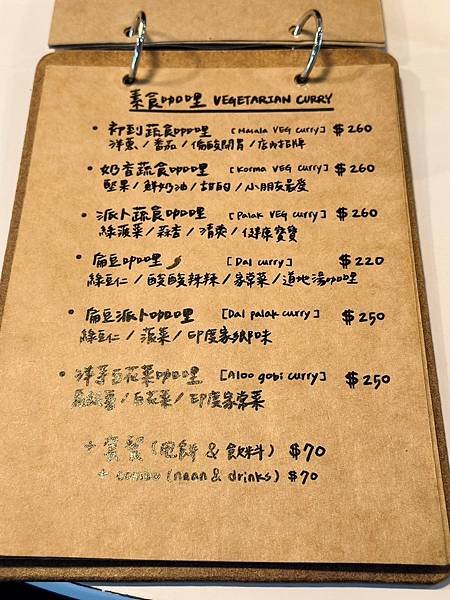 素食咖哩 VEGETARIAN CURRY
• 利蔬食咖哩 [Masala VEG curry] $260
洋蔥/番茄/微酸開胃/店內招牌
• 奶香蔬食咖哩 [Korma VEG curry] $260
堅果/鮮奶油/甜甜/小朋友最愛
• 派卜蔬食咖哩 [Palak VEG curry] $260
綠菠菜/蒜香/清爽/健康寶寶
• 扁豆咖哩 [Dal curry] $220
綠豆仁/酸酸辣辣/家常菜/道地湯咖哩
• 扁豆派卜咖哩 [Dal palak curry] $250
綠豆仁/菠菜/印度家鄉味
• 洋芋白花菜咖哩 [Aloo gobi curry] $250
馬鈴薯/白花菜/印度家常菜
+ 套餐(甩餅 & 飲料) $70
+ combo (naan & drinks) $70